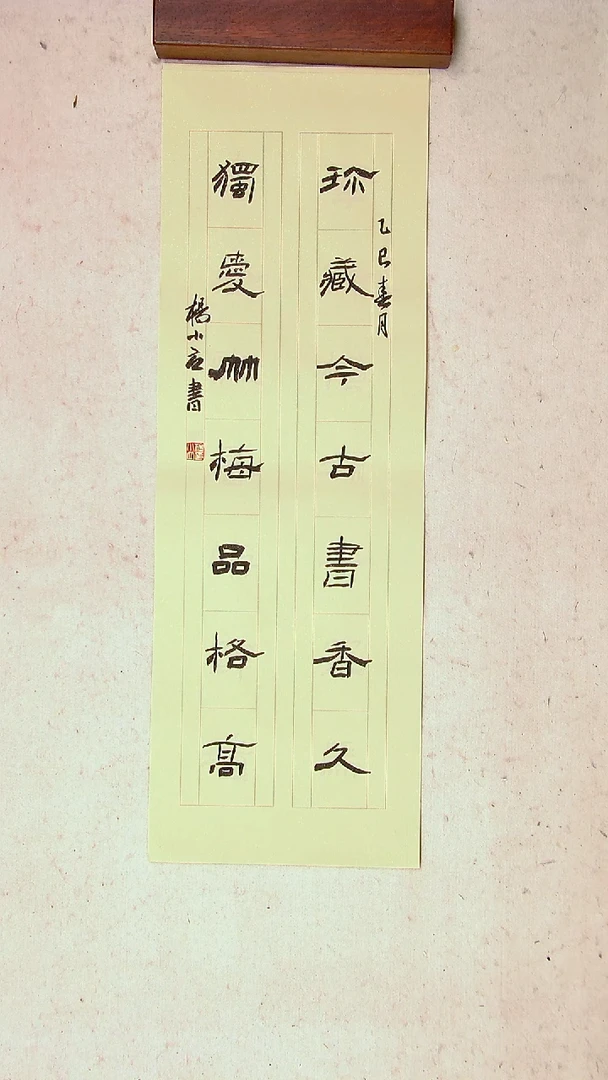 乙巳春月
珍藏今古書香久
獨愛竹梅品格高
楊小書